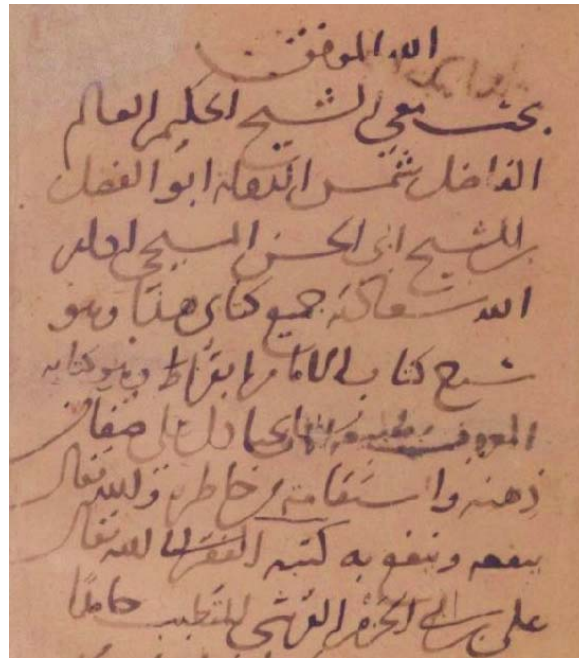 الله الموفق
بحث معي الشيخ الحكيم العالم
الفاضل شمس الدولة ابو الفضل
بن الشيخ ابي الحسن المسيحي ادام
الله سعادته جميع كتابي هذا وهو
شرح كتاب الامام ابقراط وهو كتابه
المعروف بطبيعة الانسان بحثا دل على صفاء
ذهنه واستقامة خاطره والله تعالى
ينفعه وينفع به كتبه الفقير الى الله تعالى
علي بن ابي الحزم القرشي المتطبب حامدا